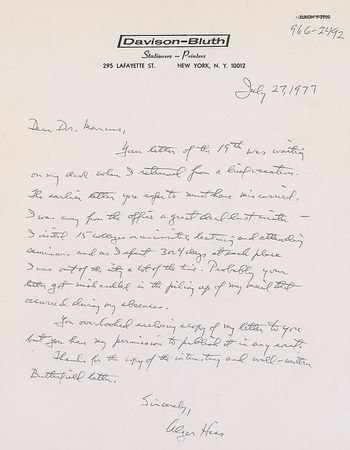 966-2492
Davison-Bluth
Stationers - Printers
295 LAFAYETTE ST. NEW YORK, N. Y. 10012
July 27, 1977
Dear Dr. Marcus,
Your letter of the 19th was waiting
on my desk when I returned from a brief vacation.
The earlier letter you refer to must have miscarried.
I was away from the office a great deal last winter —
I visited 15 colleges or universities lecturing and attending
seminars, and as I spent 3 or 4 days at each place
I was out of the city a lot of the time. Probably your
letter got mishandled in the piling up of my mail that
occurred during my absences.
You overlooked enclosing a copy of my letter to you
but you have my permission to publish it in any event.
Thanks for the copy of the interesting and well-written
Butterfield letter.
Sincerely,
Alger Hiss